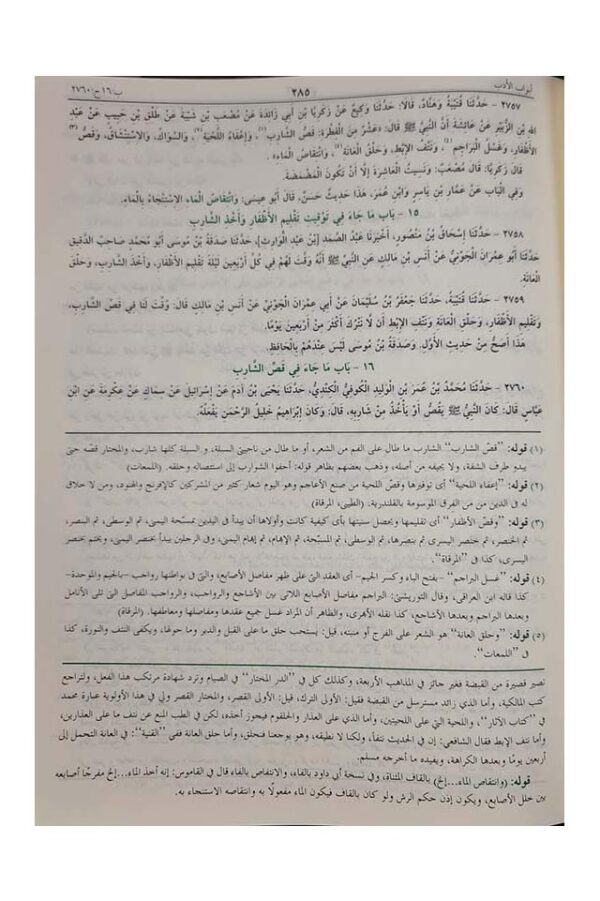 أبواب الأدب ٢٨٥ ب:١٦ح:٢٧٦٠
٢٧٥٧ - حَدَّثَنَا قُتَيْبَةُ وَهَنَّادٌ، قَالَا: حَدَّثَنَا وَكِيعٌ عَنْ زَكَرِيَّا بْنِ أَبِي زَائِدَةَ عَنْ مُصْعَبِ بْنِ شَيْبَةَ عَنْ طَلْقِ بْنِ حَبِيبٍ عَنْ عَبْدِ
الله بْنِ الزُّبَيْرِ عَنْ عَائِشَةَ أَنَّ النَّبِيَّ ﷺ قَالَ: «عَشْرٌ مِنَ الْفِطْرَةِ: قَصُّ الشَّارِبِ(١)، وَإِعْفَاءُ اللِّحْيَةِ(٢)، وَالسِّوَاكُ، وَالِاسْتِنْشَاقُ، وَقَصُّ(٣)
الأَظْفَارِ، وَغَسْلُ الْبَرَاجِمِ(٤)، وَنَتْفُ الْإِبْطِ، وَحَلْقُ الْعَانَةِ(٥)، وَانْتِقَاصُ الْمَاءِ».
قَالَ زَكَرِيَّا: قَالَ مُصْعَبٌ: وَنَسِيتُ الْعَاشِرَةَ إِلَّا أَنْ تَكُونَ الْمَضْمَضَةَ.
وَفِي الْبَابِ عَنْ عَمَّارِ بْنِ يَاسِرٍ وَابْنِ عُمَرَ، هَذَا حَدِيثٌ حَسَنٌ. قَالَ أَبُو عِيسَى: وَانْتِقَاصُ الْمَاءِ الِاسْتِنْجَاءُ بِالْمَاءِ.
١٥ - بَابُ مَا جَاءَ فِي تَوْقِيتِ تَقْلِيمِ الْأَظْفَارِ وَأَخْذِ الشَّارِبِ
٢٧٥٨ - حَدَّثَنَا إِسْحَاقُ بْنُ مَنْصُورٍ، أَخْبَرَنَا عَبْدُ الصَّمَدِ [بْنُ عَبْدِ الْوَارِثِ]، حَدَّثَنَا صَدَقَةُ بْنُ مُوسَى أَبُو مُحَمَّدٍ صَاحِبُ الدَّقِيقِ
حَدَّثَنَا أَبُو عِمْرَانَ الْجَوْنِيُّ عَنْ أَنَسِ بْنِ مَالِكٍ عَنِ النَّبِيِّ ﷺ أَنَّهُ وَقَّتَ لَهُمْ فِي كُلِّ أَرْبَعِينَ لَيْلَةً تَقْلِيمَ الْأَظْفَارِ، وَأَخْذَ الشَّارِبِ، وَحَلْقَ
الْعَانَةِ.
٢٧٥٩ - حَدَّثَنَا قُتَيْبَةُ، حَدَّثَنَا جَعْفَرُ بْنُ سُلَيْمَانَ عَنْ أَبِي عِمْرَانَ الْجَوْنِيِّ عَنْ أَنَسِ بْنِ مَالِكٍ قَالَ: وُقِّتَ لَنَا فِي قَصِّ الشَّارِبِ،
وَتَقْلِيمِ الْأَظْفَارِ، وَحَلْقِ الْعَانَةِ وَنَتْفِ الْإِبْطِ أَنْ لَا نَتْرُكَ أَكْثَرَ مِنْ أَرْبَعِينَ يَوْمًا.
هَذَا أَصَحُّ مِنْ حَدِيثِ الْأَوَّلِ. وَصَدَقَةُ بْنُ مُوسَى لَيْسَ عِنْدَهُمْ بِالْحَافِظِ.
١٦ - بَابُ مَا جَاءَ فِي قَصِّ الشَّارِبِ
٢٧٦٠ - حَدَّثَنَا مُحَمَّدُ بْنُ عُمَرَ بْنِ الْوَلِيدِ الْكُوفِيُّ الْكِنْدِيُّ، حَدَّثَنَا يَحْيَى بْنُ آدَمَ عَنْ إِسْرَائِيلَ عَنْ سِمَاكٍ عَنْ عِكْرِمَةَ عَنِ ابْنِ
عَبَّاسٍ قَالَ: كَانَ النَّبِيُّ ﷺ يَقُصُّ أَوْ يَأْخُذُ مِنْ شَارِبِهِ، قَالَ: وَكَانَ إِبْرَاهِيمُ خَلِيلُ الرَّحْمَنِ يَفْعَلُهُ.
(١) قوله: "قصّ الشارب" الشارب ما طال على الفم من الشعر، أو ما طال من ناحيتى السبلة، و السبلة كلها شارب، والمختار قصّه حتى
يبدو طرف الشفة، ولا يحيفه من أصله، وذهب بعضهم بظاهر قوله: أحفوا الشوارب إلى استئصاله وحلقه. (اللمعات)
(٢) قوله: "إعفاء اللحية" أى توفيرها وقصّ اللحية من صنع الأعاجم وهو اليوم شعار كثير من المشركين كالإفرنج والهنود، ومن لا خلاق
له فى الدين من من الفرق الموسومة بالقلندرية. (الطيبى، المرقاة)
(٣) قوله: "وقصّ الأظفار" أى تقليمها وتحصل سنيتها بأى كيفية كانت وأولاها أن يبدأ فى اليدين بمسبّحة اليمنى، ثم الوسطى، ثم البنصر،
ثم الخنصر، ثم خنصر اليسرى ثم بنصرها، ثم الوسطى، ثم المسبّحة، ثم الإبهام، ثم إبهام اليمنى، وفى الرجلين يبدأ بخنصر اليمنى، ويختم بخنصر
اليسرى، كذا فى "المرقاة".
(٤) قوله: "غسل البراجم" -بفتح الباء وكسر الجيم- أى العقد التى على ظهر مفاصل الأصابع، والتى فى بواطنها رواجب -بالجيم والموحدة-
كذا قاله ابن العراقى، وقال التوربشتى: البراجم مفاصل الأصابع اللاتى بين الأشاجع والرواجب، والرواجب المفاصل التى تلى الأنامل
وبعدها البراجم وبعدها الأشاجع، كذا نقله الأبهرى، والظاهر أن المراد غسل جميع عقدها ومفاصلها ومعاطفها. (المرقاة)
(٥) قوله: "وحلق العانة" هو الشعر على الفرج أو منبته، قيل: يستحب حلق ما على القبل والدبر وما حولها، ويكفى النتف والنورة، كذا
فى "اللمعات".
تصير قصيرة من القبضة فغير جائز فى المذاهب الأربعة، وكذلك كل فى "الدر المختار" فى الصيام وترد شهادة مرتكب هذا الفعل، ولتراجع
كتب المالكية، وأما الذى زائد مسترسل من القبضة فقيل: الأولى الترك، قيل: الأولى القصر، والمختار القصر ولى فى هذا الأولوية عبارة محمد
فى "كتاب الآثار"، واللحية التى على اللحيتين، وأما الذى على العذار والحلقوم فيجوز أخذه، لكن فى الطب المنع عن نتف ما على العذارين،
وأما نتف الإبط فقال الشافعى: إن فى الحديث نتفاً، ولكنا لا نطيقه، وهو يوجعنا فنحلق، وأما حلق العانة ففى "القنية": فى العانة التحمل إلى
أربعين يومًا وبعدها الكراهة، ويفيده ما أخرجه مسلم.
قوله: (وانتقاص الماء...إلخ) بالقاف المثناة، وفى نسخة أبى داود بالفاء، والانتفاص بالفاء قال فى القاموس: إنه أخذ الماء...إلخ مفرجًا أصابعه
بين خلل الأصابع، ويكون إذن حكم الرش ولو كان بالقاف فيكون الماء مفعولًا به وانتقاصه الاستنجاء به.